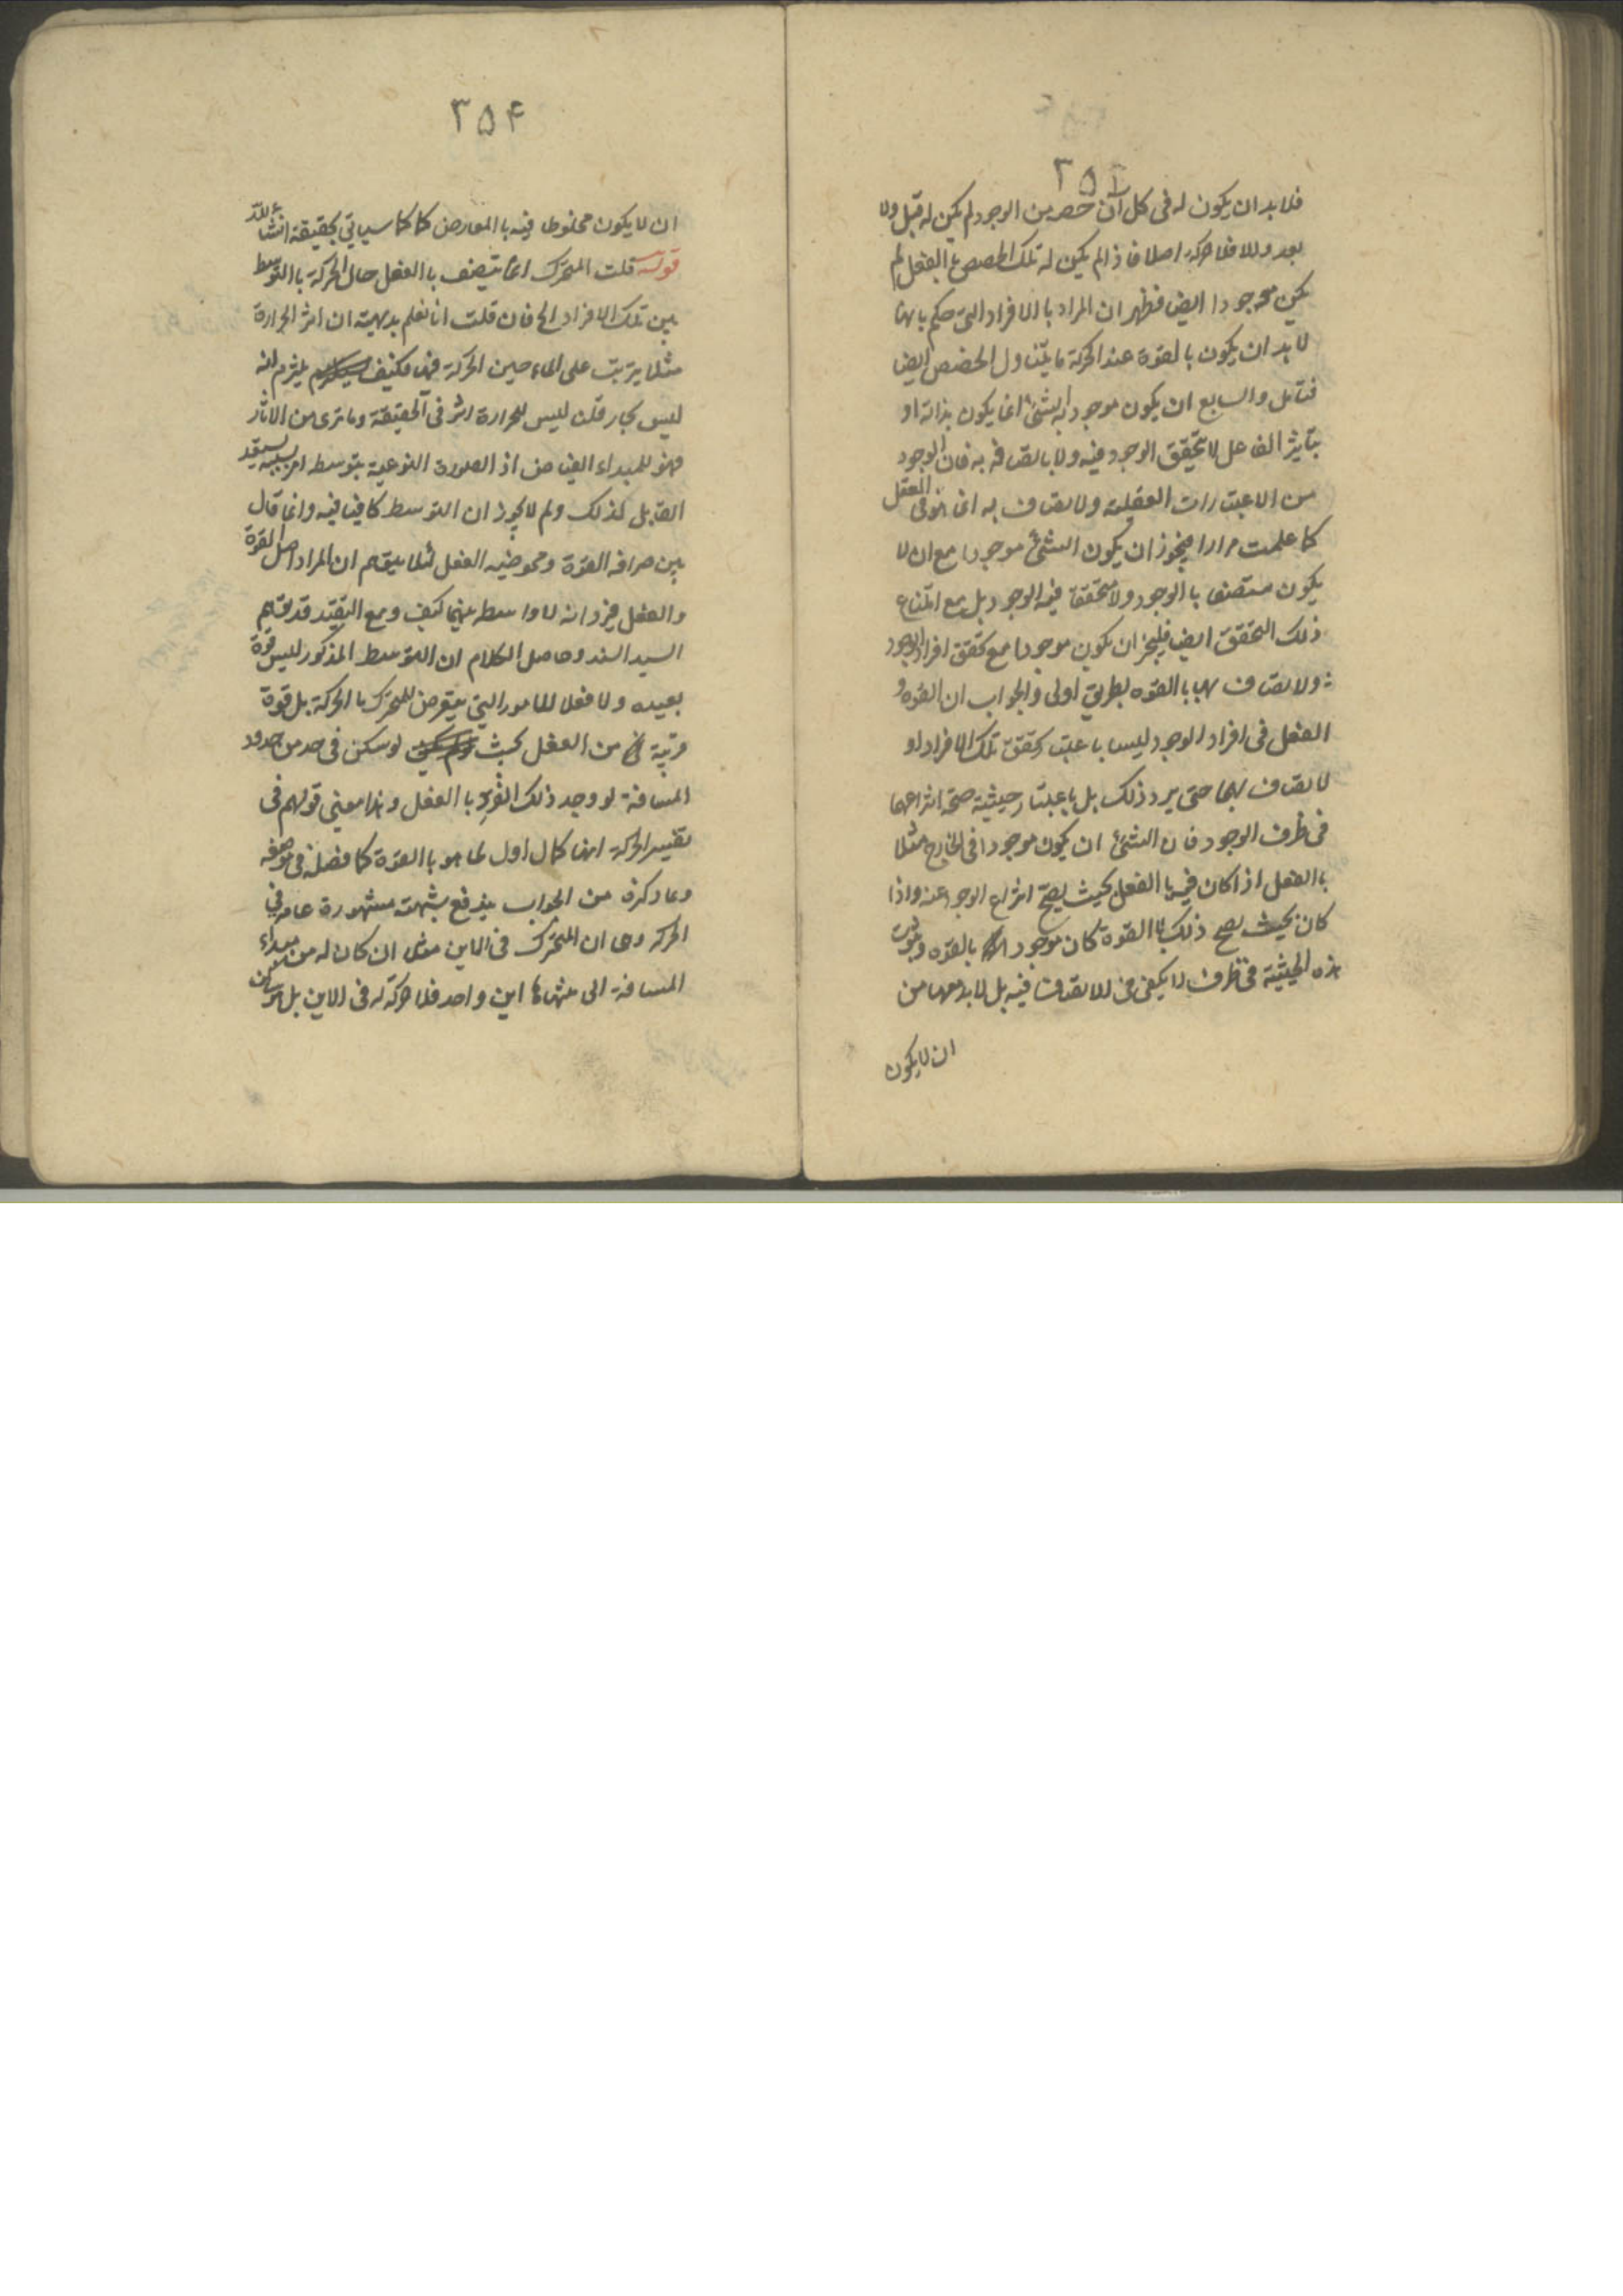 ٣٥٤
فلا بد ان يكون له فى كل آن حصر من الوجود لم يكن له قبل ولا
بعد والا فلا حركة اصلا فاذا لم يكن له تلك الحصص با الفعل لم
يكن موجودا ايض فظهر ان المراد با الافراد التى حكم بانها
لا بد ان يكون بالقوة عند الحركة ما يتناول الحصص ايض
فتامل والسابع ان يكون موجودية الشئ انما يكون بذاته او
بتاثير الفاعل لا بتحقق الوجود فيه ولا باتصافه به فان الوجود
من الاعتبارات العقلية ولاتصاف به انما هو فى العقل
كما علمت مرارا فيجوز ان يكون الشئ موجودا مع ان لا
يكون متصفا با الوجود ولا متحققا فيه الوجود بل مع امتناع
ذلك التحقق ايض فليجز ان يكون موجودا مع تحقق افراد الوجود
ولاتصاف بها با القوه بطريق اولى والجواب ان القوه و
الفعل فى افراد الوجود ليسا باعتبار تحقق تلك الافراد او
لاتصاف بها حتى يرد ذلك بل باعتبار حيثية صحة انتزاعها
فى ظرف الوجود فان الشئ ان يكون موجودا فى الخارج مثلا
با الفعل اذا كان فيه با الفعل بحيث يصح انتزاع الوجود عنه واذا
كان بحيث يصح ذلك با القوة كان موجودا بالقوه وثبوت
هذه الحيثية فى ظرف لا يكفى فى للاتصاف فيه بل لا بد معها من
ان لا يكون
٣٥٤
ان لا يكون مخلوطا فيه با العارض كما سياتي تحقيقه انشا ءالله
قوله قلت المتحرك انما يتصف با الفعل حال الحركة با التوسط
بين تلك الافراد الخ فان قلت انا نعلم بديهية ان اثر الحرارة
مثلا يترتب على الماء حين الحركة فيها فكيف يلتزم انه
ليس بحار قلت ليس للحرارة اثر فى الحقيقة وما ترى من الاثار
فهو للمبداء الفياض اذ الصورة النوعية بتوسط امر بسببه يستعد
القابل لذلك ولم لا يجوز ان التوسط كافيا فيه وانما قال
بين صرافه القوة ومحوضيه الفعل لئلا يتوهم ان المراد اصل القوة
والفعل فيرد انه لا واسطه بينهما كيف ومع التقييد قد توهم
السيد السند وحاصل الكلام ان التوسط المذكور ليس قوة
بعيده ولا فعلا للامور التي يتعرض للمتحرك با الحركة بل قوة
قريبة من الفعل بحيث لو سكن فى حد من حدود
المسافة لو وجد ذلك الفرد با الفعل وهذا معنى قولهم فى
تفسير الحركة انها كمال اول لما هو با القوة كما فصل فى موضعه
وبما ذكره من الجواب يندفع شبهته مشهورة عامه في
الحركه وهى ان المتحرك فى الاين مثلا ان كان له من مبداء
المسافة الى منتهاها اين واحد فلا حركة له فى الاين بل هو ساكن